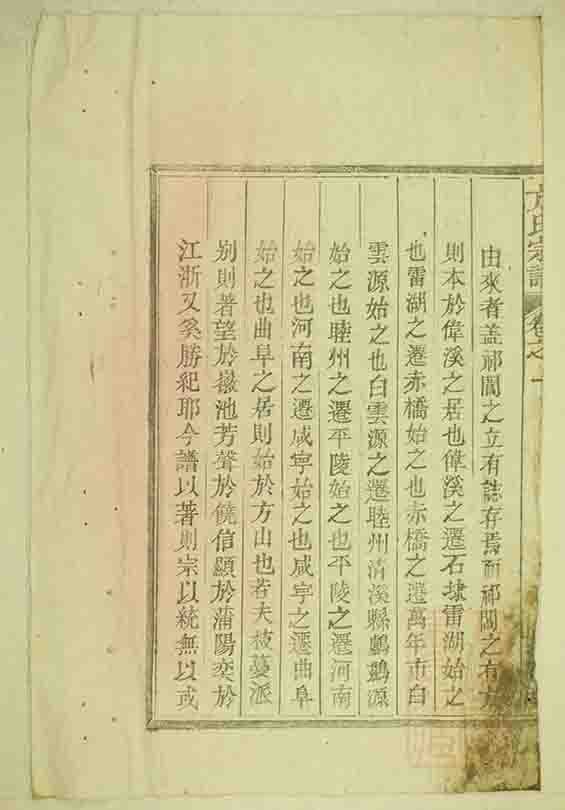 方氏宗譜 卷之一
由來者盖祁閶之立有誌存焉而祁閶之有方
則本於偉溪之居也偉溪之遷石埭雷湖始之
也雷湖之遷赤橋始之也赤橋之遷萬年市白
雲源始之也白雲源之遷睦州清溪縣鸕鶿源
始之也睦州之遷平陵始之也平陵之遷河南
始之也河南之遷咸寧始之也咸宇之遷曲阜
始之也曲阜之居則始於方山也若夫枝蔓派
别則著望於嶽池芳聲於饒信顯於蒲陽奕於
江浙又奚勝紀耶今譜以著則宗以統無以或